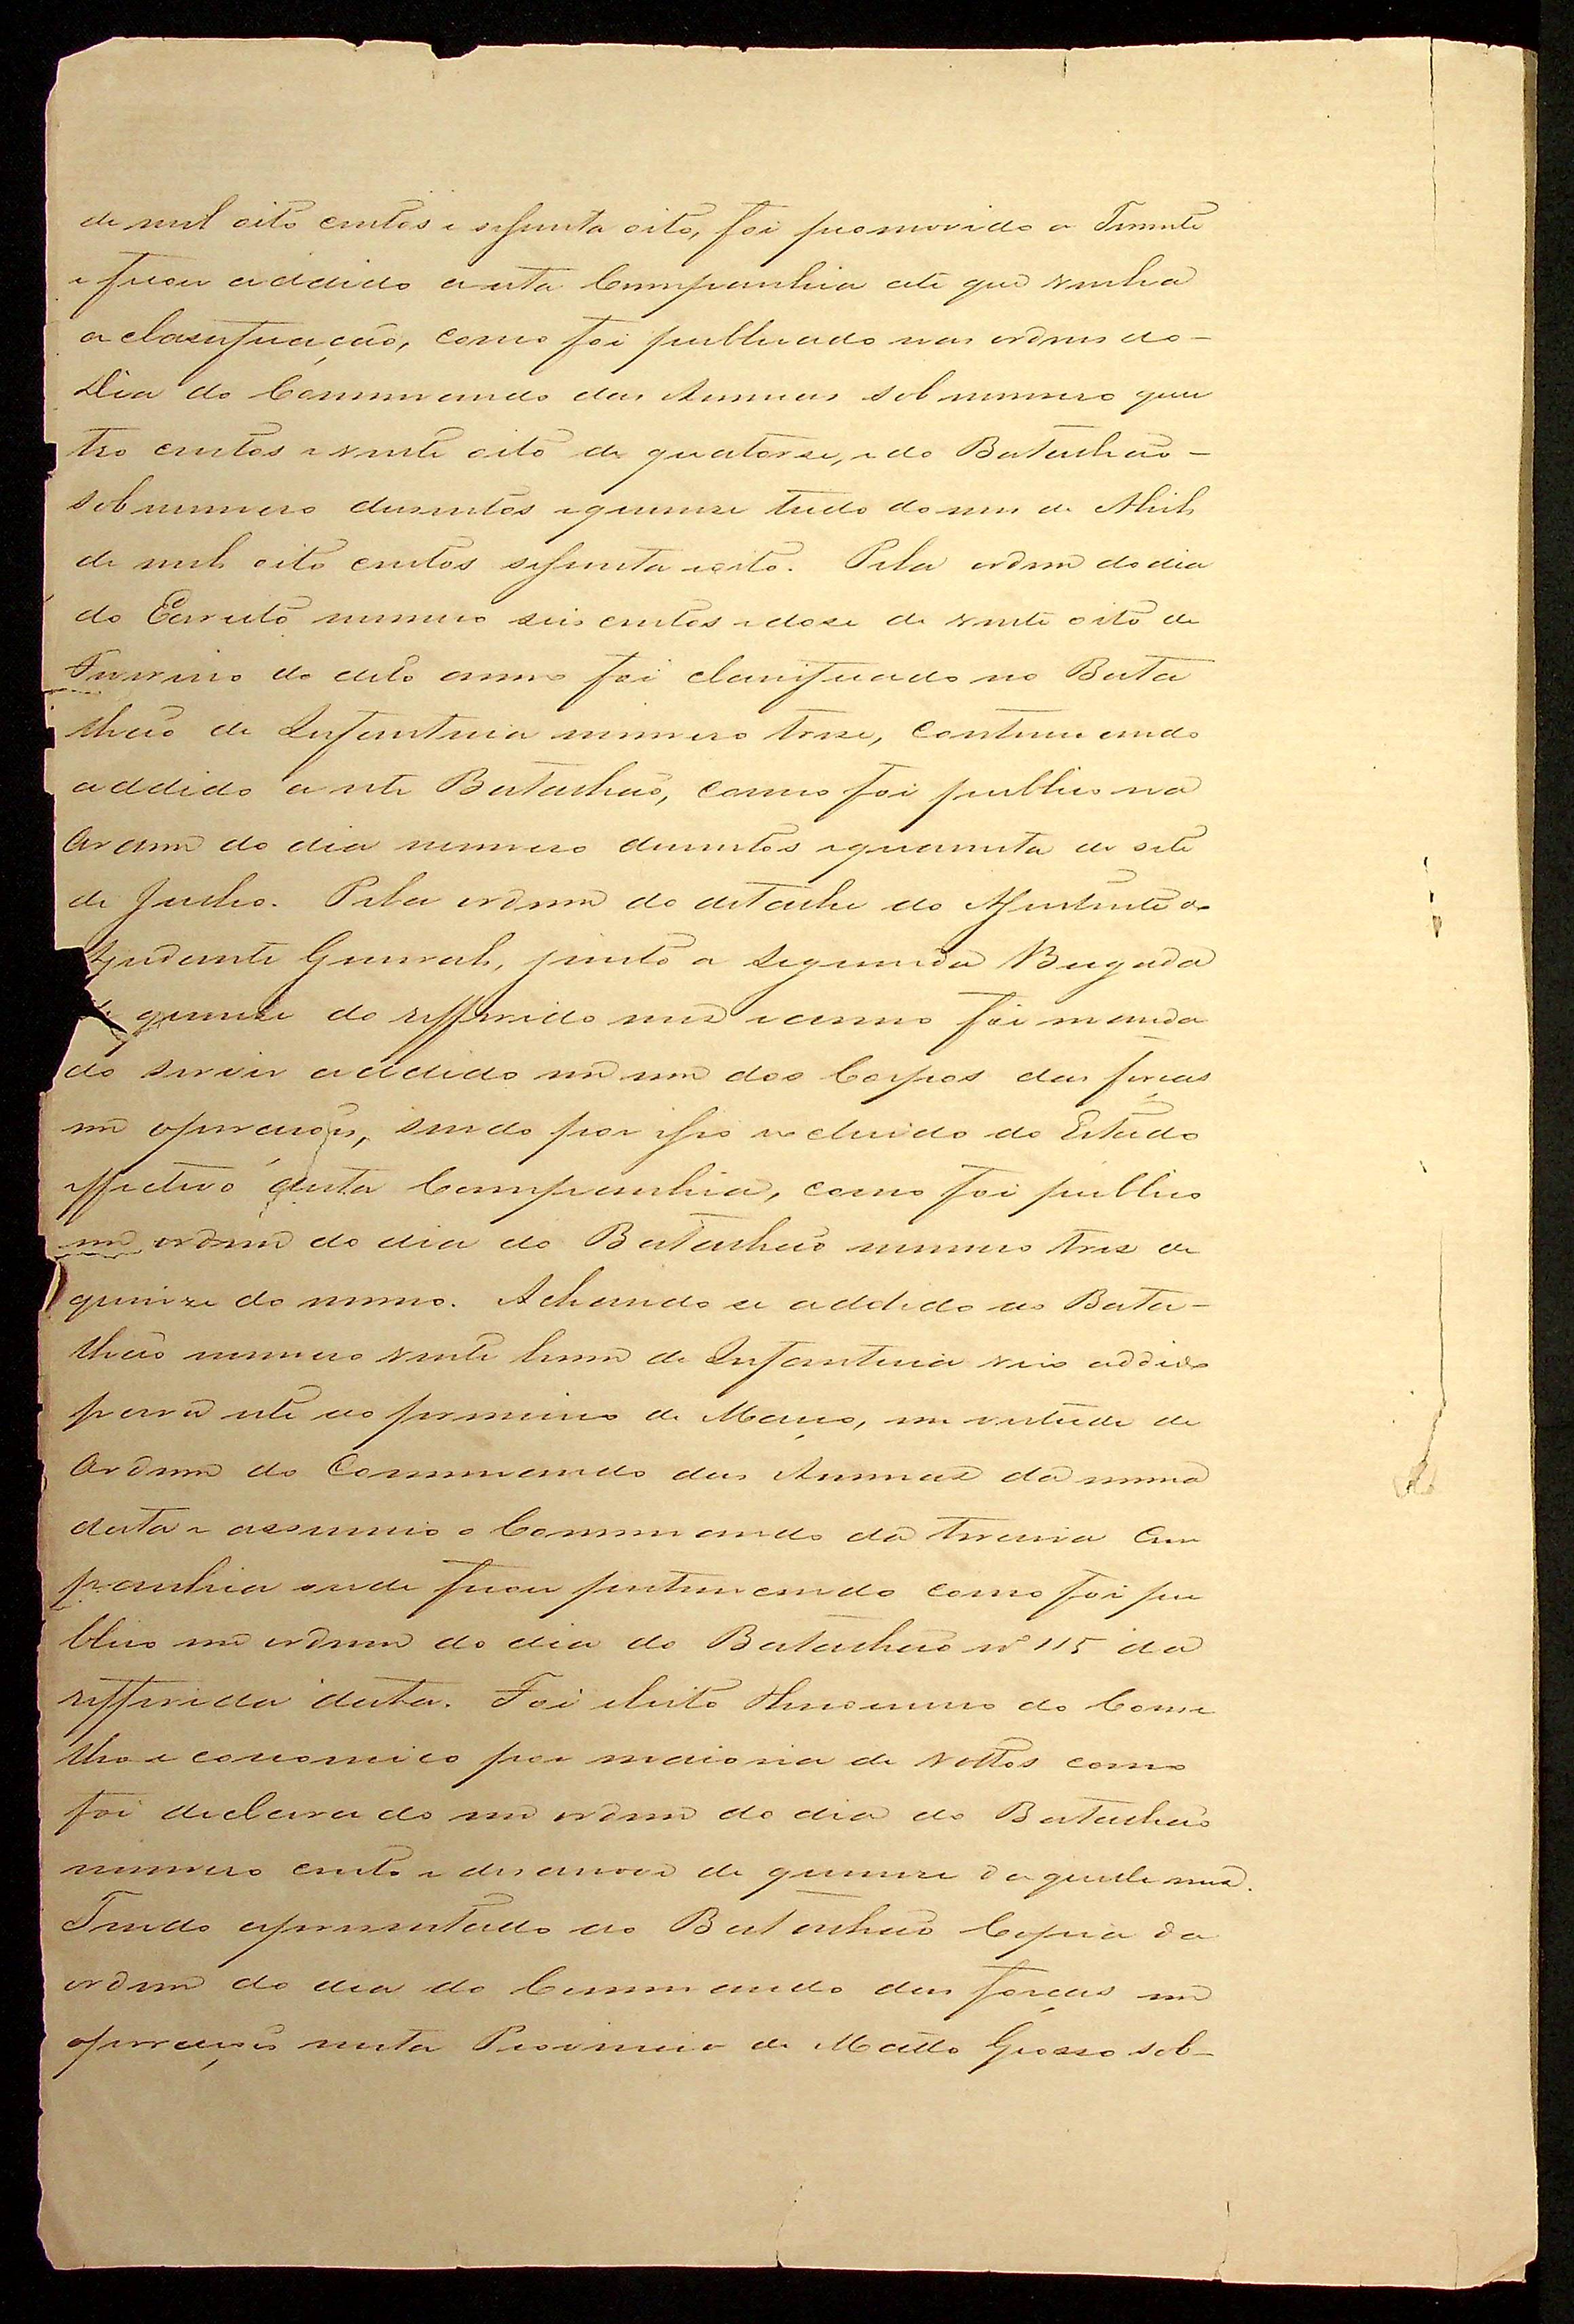 de mil oito centos e sessenta oito, foi promovido a Tenente
e ficou addido a esta Companhia até que venha
a classificação, como foi publicado nas ordens do-
Dia do Commando das Armas sob numero qua
tro centos e vinte oito de quatorse, e do Batalhão-
sob numero dusentos e quinze tudo do mes de Abril
de mil oito centos sessenta e oito. Pela ordem do dia
do Exercito numero seis centos e dose de vinte oito de
Fevereiro do dito anno foi classificado no Bata
lhão de Infantaria numero trese, continuando
addido a este Batalhão, como foi publico na
Ordem do dia numero dusentos e quarenta de sete
de Julho. Pela ordem do detalhe do Assistente do
Ajudante General, junto a segunda Brigada
de quinze do refferido mez e anno foi manda
do servir addido em um dos Corpos das forças
em operações, sendo por isso excluido do Estado
effectivo desta Companhia, como foi publico
em ordem do dia do Batalhão numero tres de
quinze do mesmo. Achando se addido ao Bata-
lhão numero vinte hum de Infantaria veio addido
para este ao primeiro de Março, em virtude de
Ordem do Commando das Armas da mesma
data e assumio o Commando da terceira Com
panhia onde ficou pertencendo como foi pu
blico em ordem do dia do Batalhão nº 115 da
refferida data. Foi eleito thesoureiro do Conse
lho economico por maioria de vottos como
foi declarado em ordem do dia do Batalhão
numero cento e desanove de quinze daquelle mez.
Tendo apresentado ao Batalhão Copia da
ordem do dia do Commando das forças em
operações nesta Provincia de Matto Grosso sob-